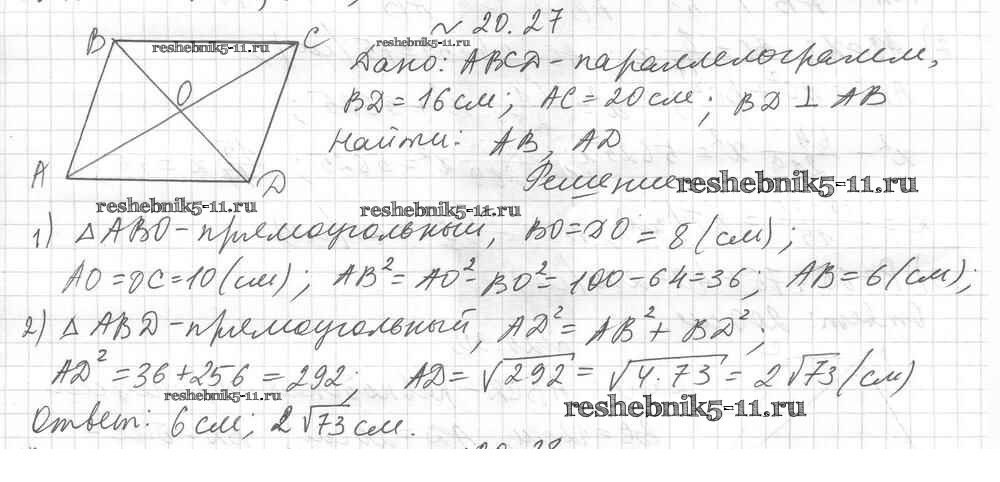 № 20.27
B C O A D
reshebnik5-11.ru reshebnik5-11.ru
Дано: ABCD - параллелограмм,
BD = 16 см; AC = 20 см; BD ⊥ AB
Найти: AB, AD
Решение reshebnik5-11.ru
reshebnik5-11.ru reshebnik5-11.ru
1) △ABO - прямоугольный, BO = DO = 8 (см);
AO = OC = 10 (см); AB² = AO² - BO² = 100 - 64 = 36; AB = 6 (см);
2) △ABD - прямоугольный, AD² = AB² + BD²;
AD² = 36 + 256 = 292; AD = √292 = √4·73 = 2√73 (см)
reshebnik5-11.ru reshebnik5-11.ru
Ответ: 6 см; 2√73 см.